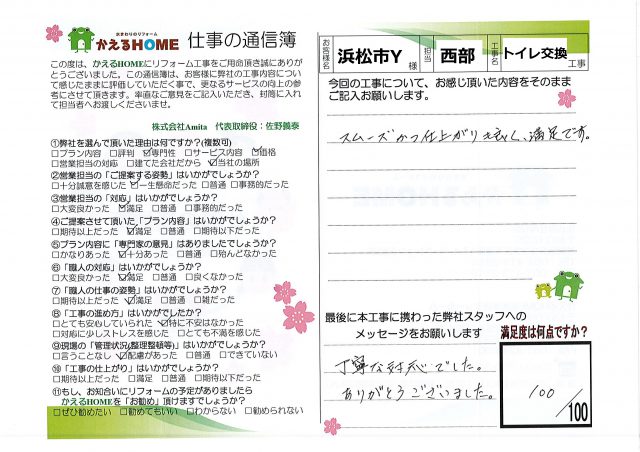 水まわりのリフォーム
かえるHOME 仕事の通信簿
この度は、かえるHOMEにリフォーム工事をご用命頂き誠にありが
とうございました。この通信簿は、お客様に弊社の工事内容につい
て感じたままに評価していただく事で、更なるサービスの向上の参
考にさせて頂きます。率直なご意見をご記入いただき、封筒に入れ
て担当者へお渡しくださいませ。
株式会社Amita 代表取締役：佐野義泰
①弊社を選んで頂いた理由は何ですか?(複数可)
□プラン内容 □評判 ☑専門性 □サービス内容 ☑価格
□営業担当の対応 □建てた会社だから ☑当社の場所
②営業担当の「ご提案する姿勢」はいかがでしょうか?
□十分誠意を感じた ☑一生懸命だった □普通 □事務的だった
③営業担当の「対応」はいかがでしょうか?
□大変良かった ☑満足 □普通 □事務的だった
④ご提案させて頂いた「プラン内容」はいかがでしょうか?
□期待以上だった ☑満足 □普通 □期待以下だった
⑤プラン内容に「専門家の意見」はありましたでしょうか?
□かなりあった ☑十分あった □普通 □殆んどなかった
⑥「職人の対応」はいかがでしょうか?
□大変良かった ☑満足 □普通 □良くなかった
⑦「職人の仕事の姿勢」はいかがでしょうか?
□期待以上だった ☑満足 □普通 □雑だった
⑧「工事の進め方」はいかがでしたか?
□とても安心していられた ☑特に不安はなかった
□対応に少しストレスを感じた □とても不満を感じた
⑨現場の「管理状況(整理整頓等)」はいかがでしょうか?
□言うことなし ☑配慮があった □できていない
⑩「工事の仕上がり」はいかがでしょうか?
□期待以上だった □満足 □普通 □期待以下だった
⑪もし、お知合いにリフォームの予定がありましたら
かえるHOMEを「お勧め」頂けますでしょうか?
□ぜひ勧めたい □勧めてもいい □わからない □勧められない
お客様名 浜松市Y 様 担当 西部 工事名 トイレ交換 工事
今回の工事について、お感じ頂いた内容をそのまま
ご記入お願いします。
スムーズかつ仕上がり も良く、満足です。
最後に本工事に携わった弊社スタッフへの
メッセージをお願いします
満足度は何点ですか?
丁寧な対応でした。
ありがとうございました。
100/100